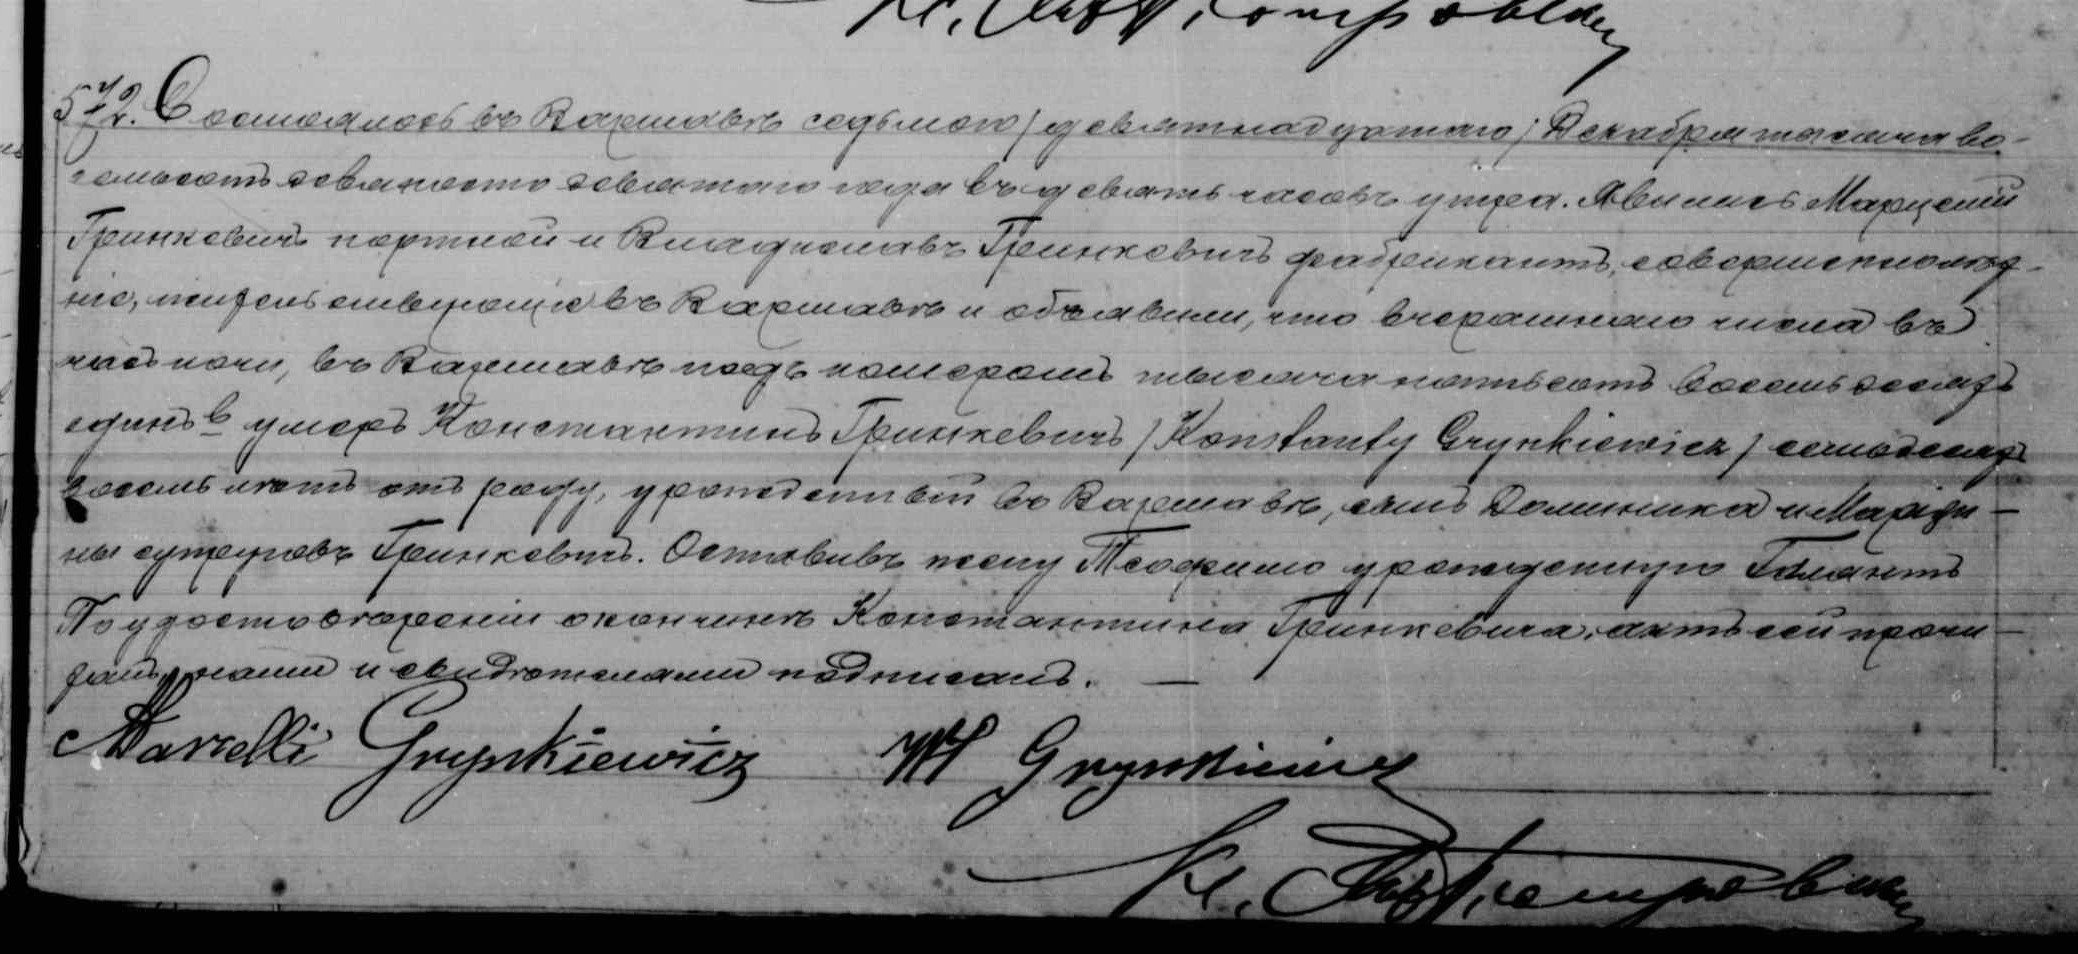 572. Состоялось въ Варшавѣ седьмого / девятнадцатаго / Декабря тысяча во-
семьсотъ девяносто девятаго года въ девять часовъ утра. Явились Марцелій
Гринкевичъ портной и Владиславъ Гринкевичъ фабрикантъ, совершеннолѣт-
ніе, жительствующіе въ Варшавѣ и объявили, что вчерашняго числа въ
часъ ночи, въ Варшавѣ подъ номеромъ тысяча пятьсотъ восемьдесятъ
единъ в умеръ Константинъ Гринкевичъ / Konstanty Grynkiewicz / семьдесятъ
восемь лѣтъ отъ роду, урожденный въ Варшавѣ, сынъ Доминика и
супруговъ Гринкевичъ. Оставивъ жену Теофилю урожденную Галантъ
По удостовѣреніи о кончинѣ Константина Гринкевича, актъ сей прочи-
танъ, нами и свидѣтелями подписанъ. —
Marcelli Grynkiewicz W Grynkiewicz